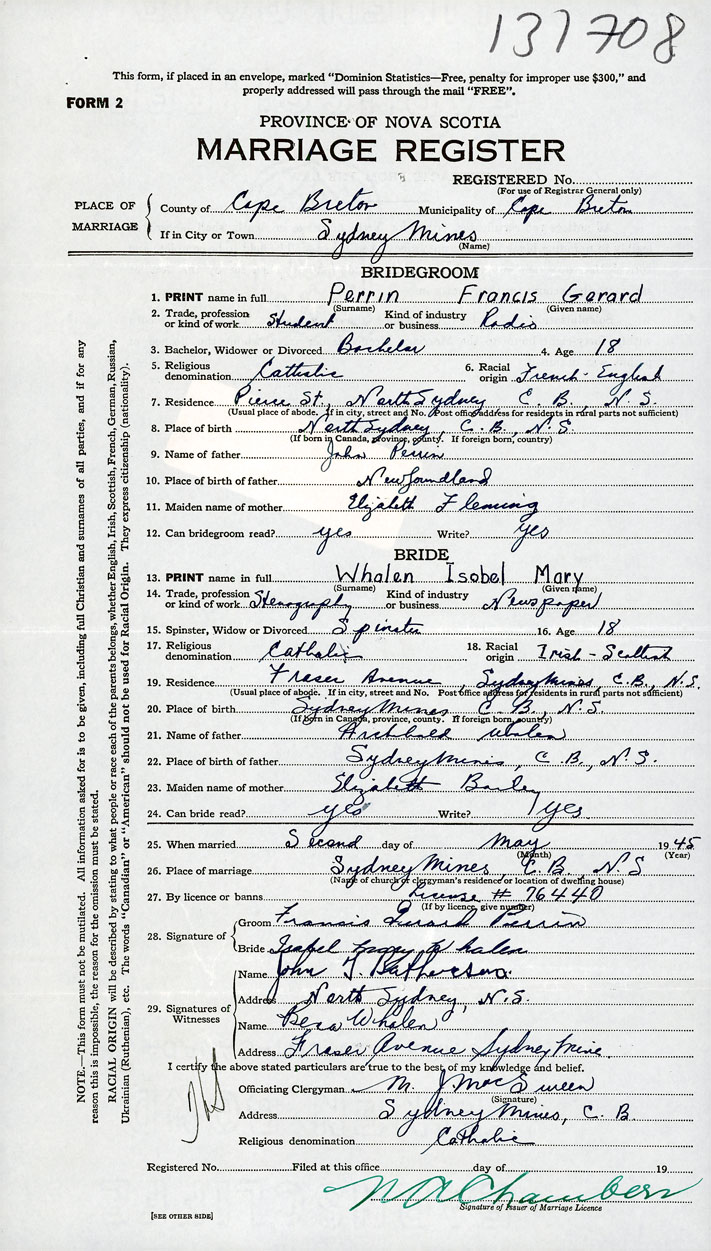 131708
This form, if placed in an envelope, marked "Dominion Statistics—Free, penalty for improper use $300," and
properly addressed will pass through the mail "FREE".
FORM 2
PROVINCE OF NOVA SCOTIA
MARRIAGE REGISTER
REGISTERED No.
(For use of Registrar General only)
PLACE OF MARRIAGE
County of Cape Breton Municipality of Cape Breton
If in City or Town Sydney Mines
(Name)
BRIDEGROOM
1. PRINT name in full Perrin Francis Gerard
(Surname) (Given name)
2. Trade, profession or kind of work Student Kind of industry or business Radio
3. Bachelor, Widower or Divorced Bachelor 4. Age 18
5. Religious denomination Catholic 6. Racial origin French-English
7. Residence Pierce St., North Sydney C. B., N. S.
(Usual place of abode. If in city, street and No. Post office address for residents in rural parts not sufficient)
8. Place of birth North Sydney, C. B., N. S.
(If born in Canada, province, county. If foreign born, country)
9. Name of father John Perrin
10. Place of birth of father Newfoundland
11. Maiden name of mother Elizabeth Fleming
12. Can bridegroom read? yes Write? yes
BRIDE
13. PRINT name in full Whalen Isobel Mary
(Surname) (Given name)
14. Trade, profession or kind of work Stenography Kind of industry or business Newspaper
15. Spinster, Widow or Divorced Spinster 16. Age 18
17. Religious denomination Catholic 18. Racial origin Irish-Scottish
19. Residence Fraser Avenue, Sydney Mines, C. B., N. S.
(Usual place of abode. If in city, street and No. Post office address for residents in rural parts not sufficient)
20. Place of birth Sydney Mines C. B., N. S.
(If born in Canada, province, county. If foreign born, country)
21. Name of father Archibald Whalen
22. Place of birth of father Sydney Mines, C. B., N. S.
23. Maiden name of mother Elizabeth
24. Can bride read? yes Write? yes
25. When married Second day of May 1945
(Month) (Year)
26. Place of marriage Sydney Mines, C. B., N. S
(Name of church or clergyman's residence or location of dwelling house)
27. By licence or banns License # 76440
(If by licence, give number)
28. Signature of
Groom Francis Gerard Perrin
Bride Isabel Mary Whalen
29. Signatures of Witnesses
Name John J.
Address North Sydney, N. S.
Name Whalen
Address Fraser Avenue Sydney Mine
I certify the above stated particulars are true to the best of my knowledge and belief.
Officiating Clergyman M. J. MacSween
(Signature)
Address Sydney Mines, C. B.
Religious denomination Catholic
Registered No. Filed at this office day of 19
Chambers
Signature of Issuer of Marriage Licence
[SEE OTHER SIDE]
NOTE.—This form must not be mutilated. All information asked for is to be given, including full Christian and surnames of all parties, and if for any
reason this is impossible, the reason for the omission must be stated.
RACIAL ORIGIN will be described by stating to what people or race each of the parents belongs, whether English, Irish, Scottish, French, German, Russian,
Ukrainian (Ruthenian), etc. The words "Canadian" or "American" should not be used for Racial Origin. They express citizenship (nationality).